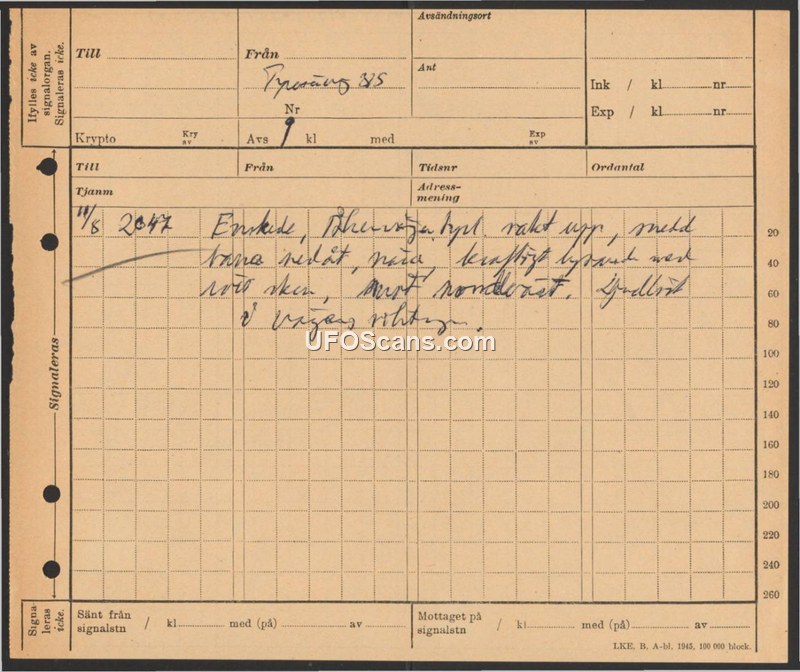 Avsändningsort
Ifylles icke av
signalorgan.
Signaleras icke.
Till
Från
Ant
385
Ink / kl nr
Nr
9
Exp / kl nr
Krypto
Kry
av
Avs kl med
Exp
av
Till
Från
Tidsnr
Ordantal
Tjanm
Adress-
mening
11/8 2047 Enskede, rakt upp, med
bana nedåt, kraftigt lysande med
sken, mot nordväst. Ljudlöst
i vägens riktning.
UFOScans.com
20
40
60
80
100
120
140
160
180
200
220
240
260
Signaleras
Signa-
leras
icke.
Sänt från
signalstn
/ kl med (på) av
Mottaget på
signalstn
/ kl med (på) av
LKE, B, A-bl. 1945, 100 000 block.